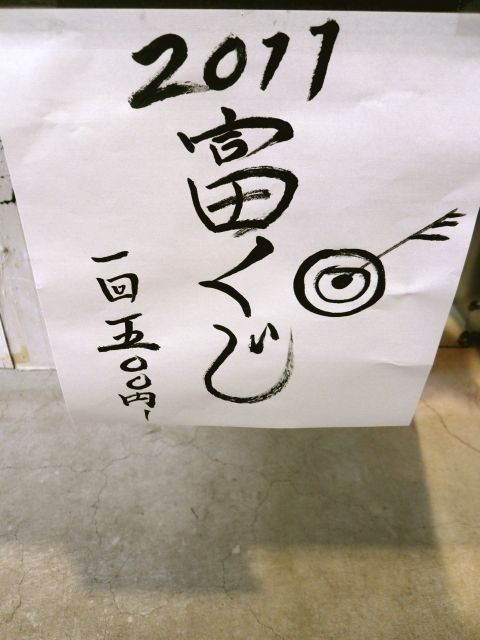 2011
富くじ
一回五〇〇円